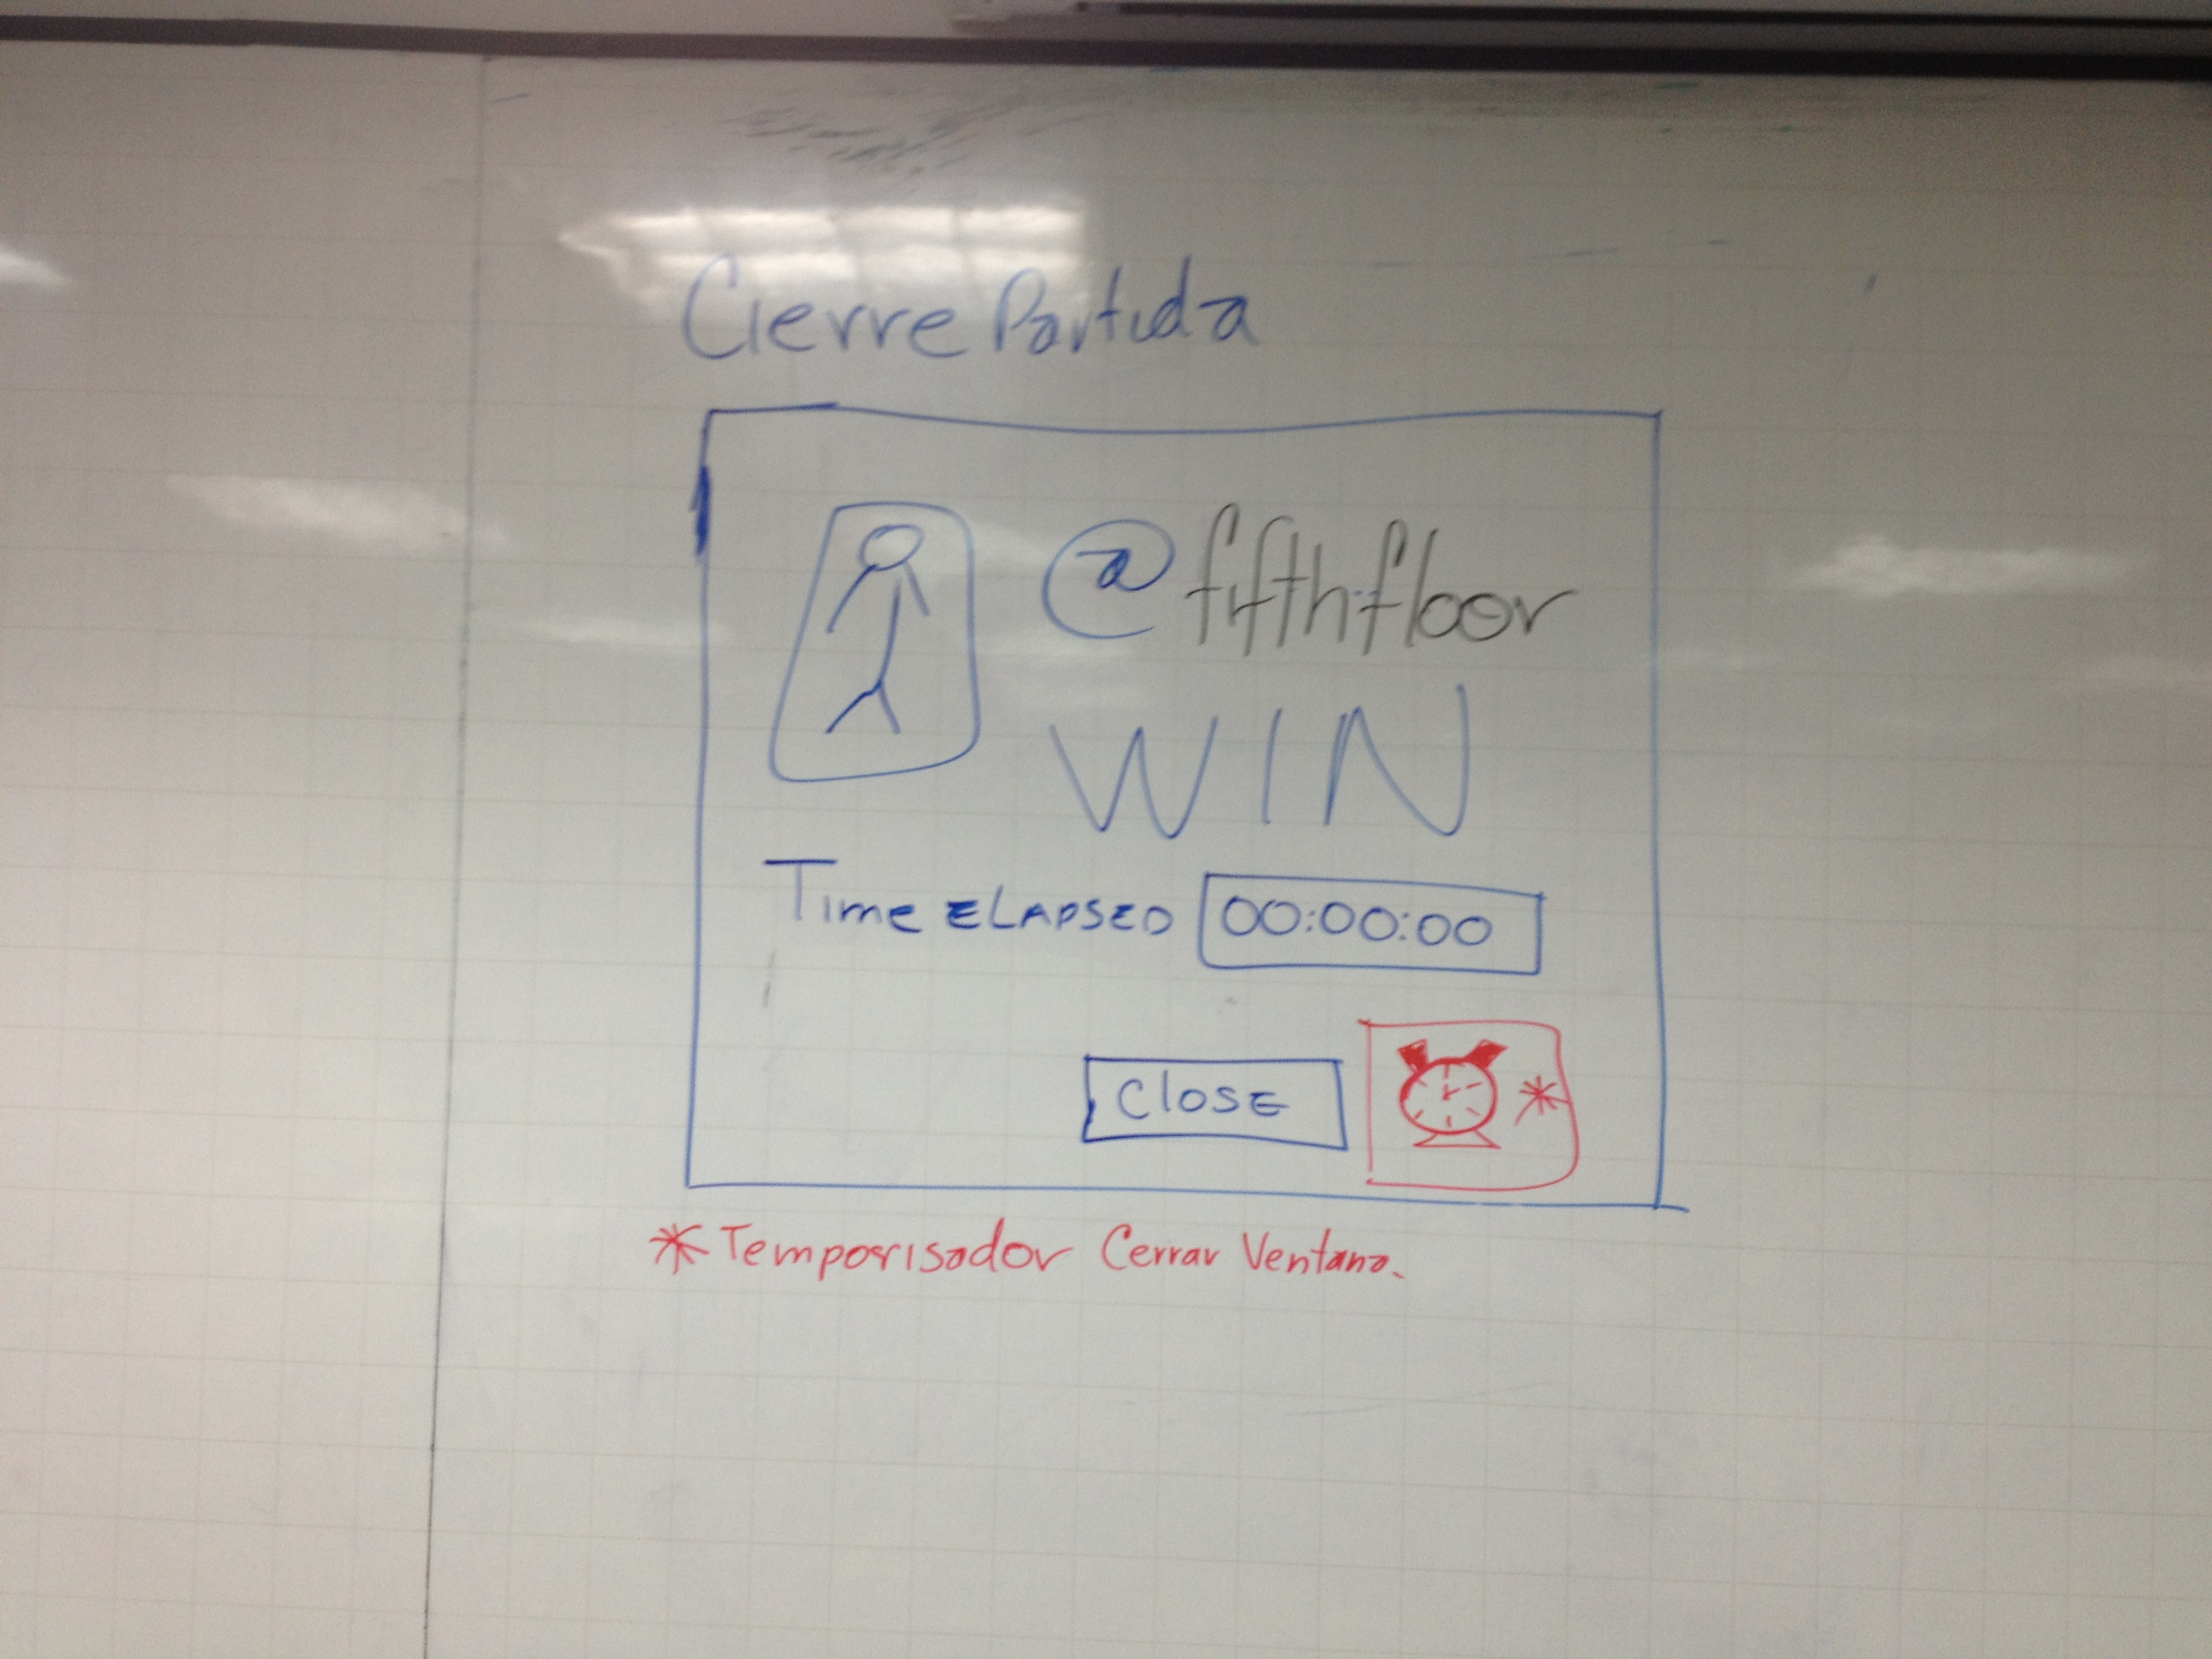 Cierre Partida
@fifthfloor
WIN
Time ELAPSED 00:00:00
Close *
* Temporisador Cerrar Ventana.